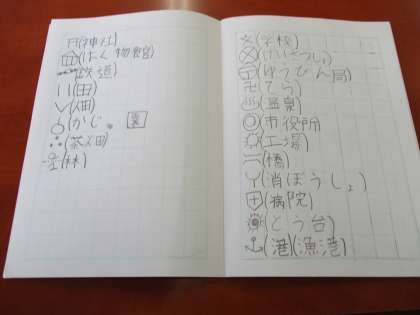 (神社)
(はく物館)
(鉄道)
(田)
(畑)
(かじゅ 園
(茶畑)
(林)
文(学校)
(けいさつしょ)
(ゆうびん局)
卍(てら)
(温泉)
◎(市役所)
(工場)
(橋)
Y(消ぼうしょ)
(病院)
(とう台)
(港)(漁港)